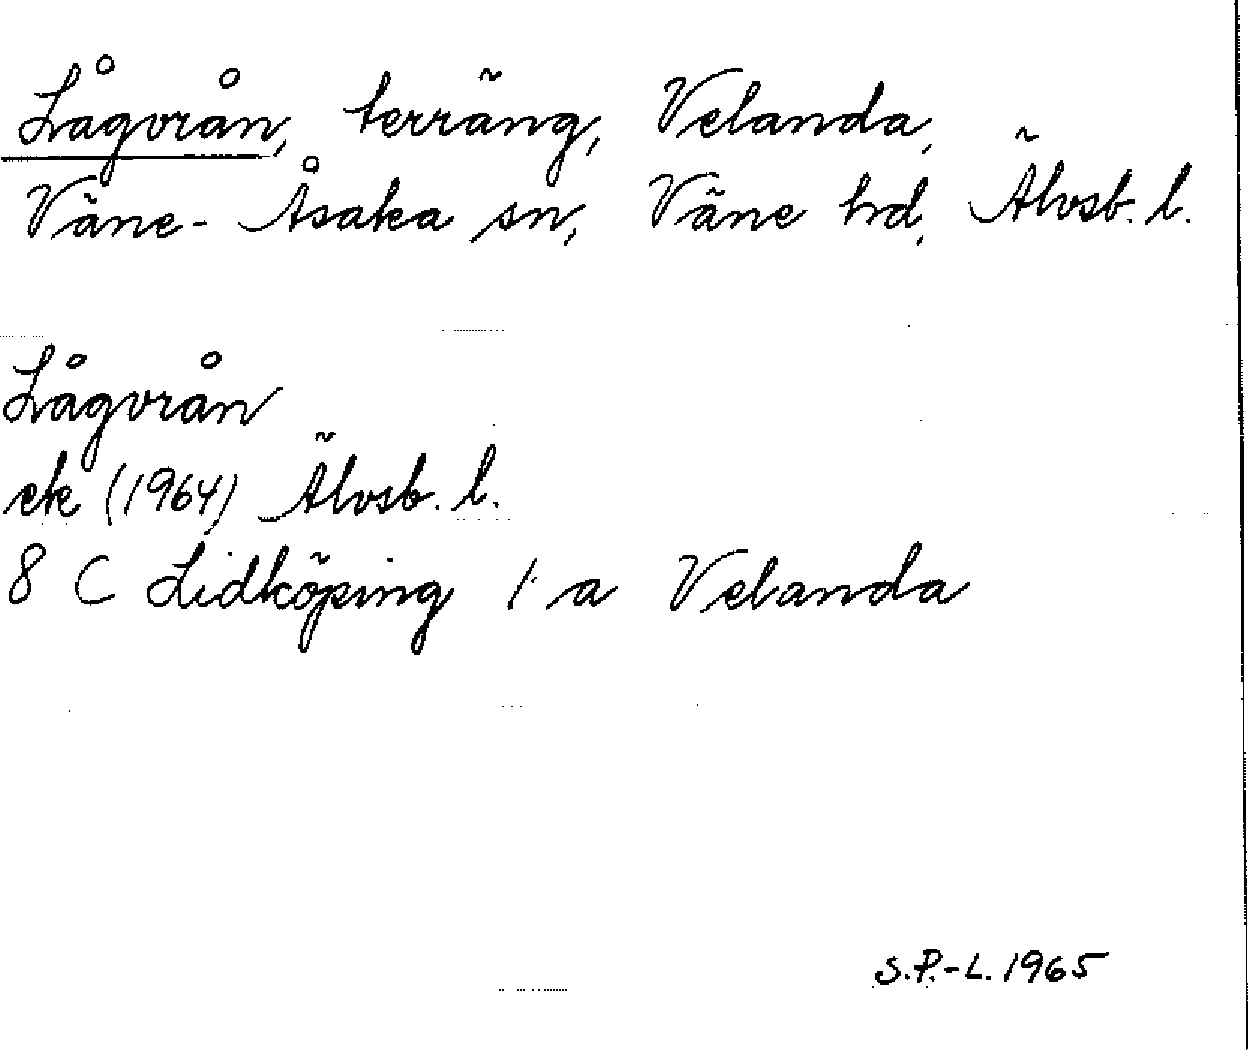 Lågvrån, terräng, Velanda,
Väne-Åsaka sn, Väne hd, Älvsb. l.
Lågvrån
ek (1964) Älvsb. l.
8 C Lidköping 1 a Velanda
S.P.-L. 1965